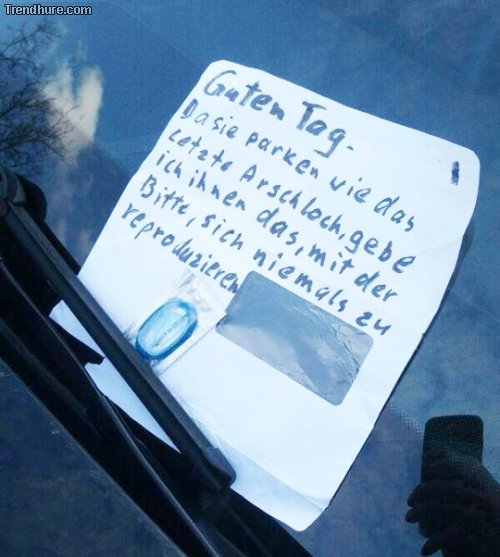 Trendhure.com
Guten Tag.
Da sie parken wie das
Letzte Arschloch, gebe
ich ihnen das, mit der
Bitte, sich niemals zu
reproduzieren